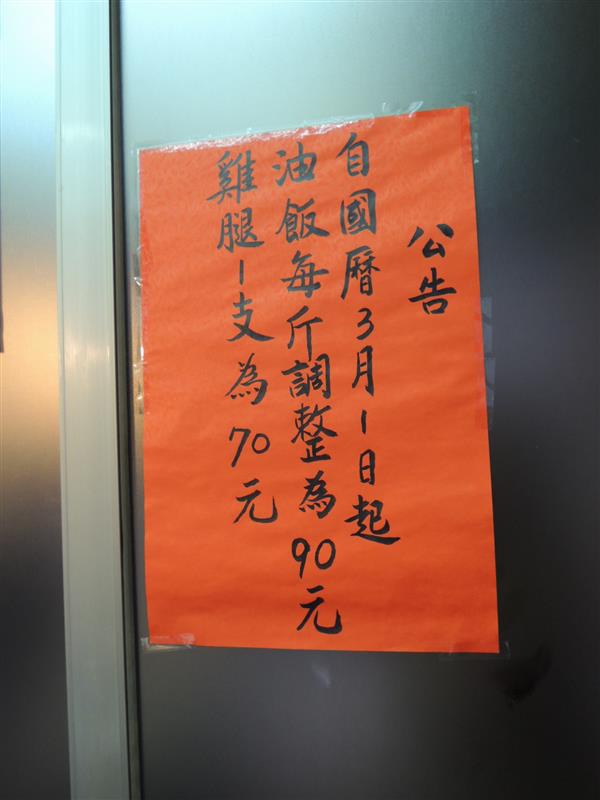 公告
自國曆3月1日起
油飯每斤調整為90元
雞腿1支為70元